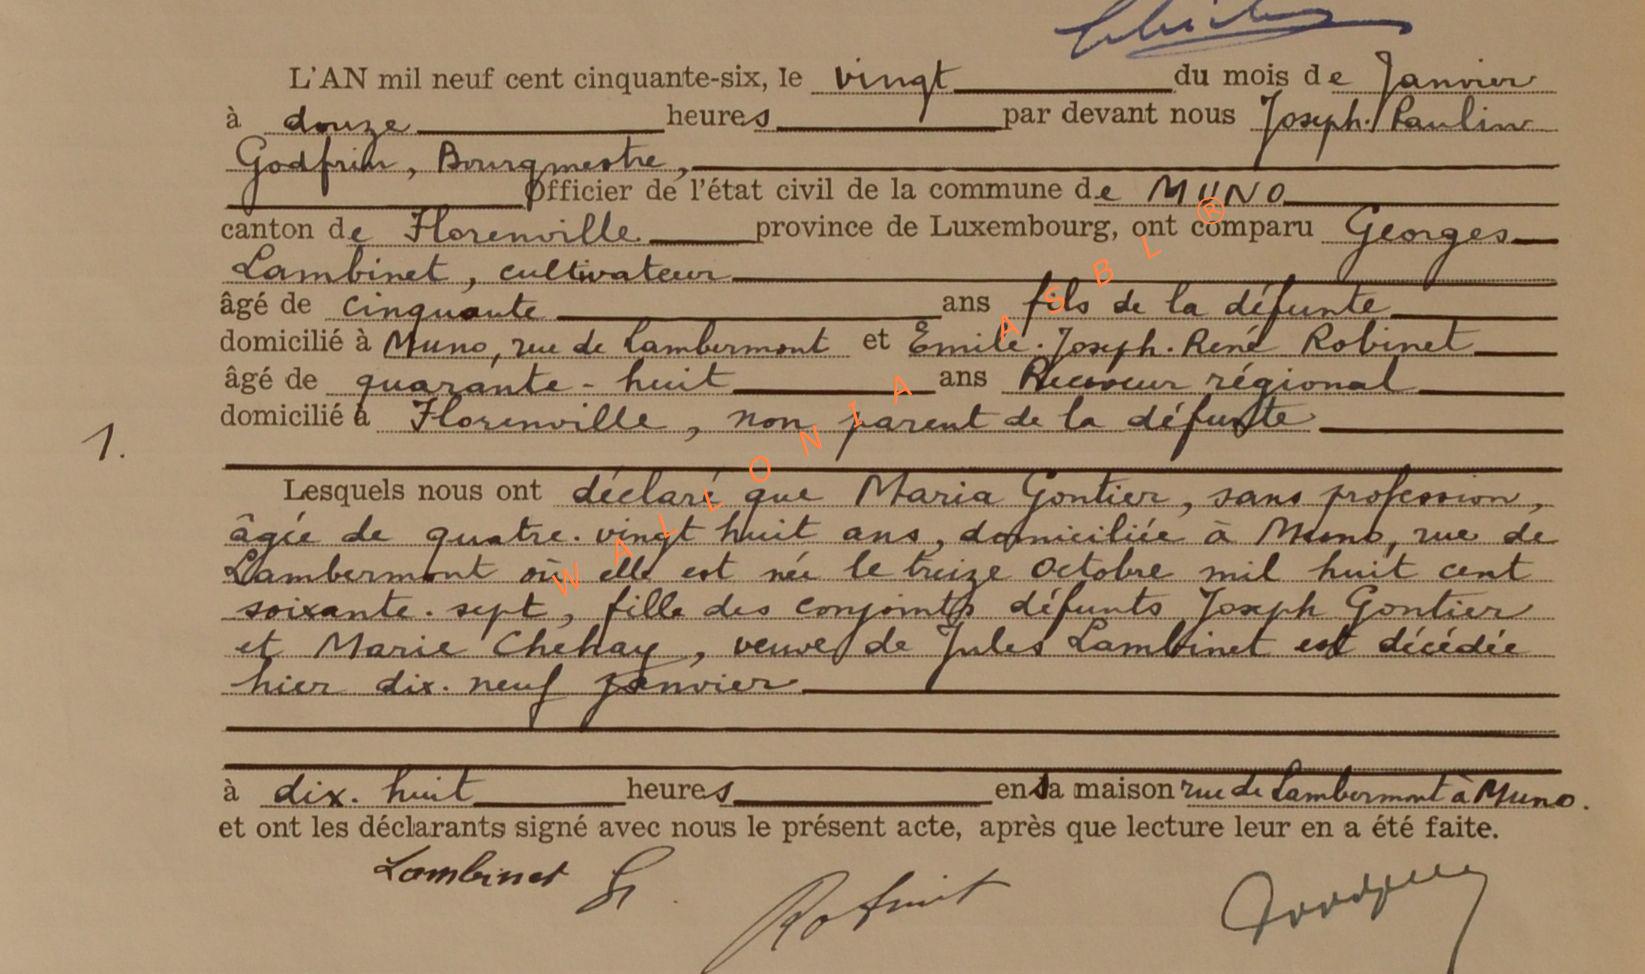 L'AN mil neuf cent cinquante-six, le vingt du mois de Janvier
à douze heures par devant nous Joseph-Paulin
Godfrin, Bourgmestre,
Officier de l'état civil de la commune de MUNO
canton de Florenville province de Luxembourg, ont comparu Georges
Lambinet, cultivateur
âgé de cinquante ans fils de la défunte
domicilié à Muno, rue de Lambermont et Emile-Joseph-René Robinet
âgé de quarante-huit ans Receveur régional
domicilié à Florenville, non parent de la défunte
1.
Lesquels nous ont déclaré que Maria Gontier, sans profession,
âgée de quatre-vingt huit ans, domiciliée à Muno, rue de
Lambermont où elle est née le treize Octobre mil huit cent
soixante-sept, fille des conjoints défunts Joseph Gontier
et Marie Chéhay, veuve de Jules Lambinet est décédée
hier dix-neuf janvier
à dix-huit heures en sa maison rue de Lambermont à Muno.
et ont les déclarants signé avec nous le présent acte, après que lecture leur en a été faite.
Lambinet G.
Robinet
WALLONIA ASBL ®